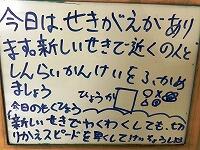 今日は、せきがえがあり
ます。新しいせきで近くの人と
しんらいかんけいをふかめ
ましょう
ひょうか
今日のもくひょう
新しいせきでわくわくしても、切り
かえスピードを早くして